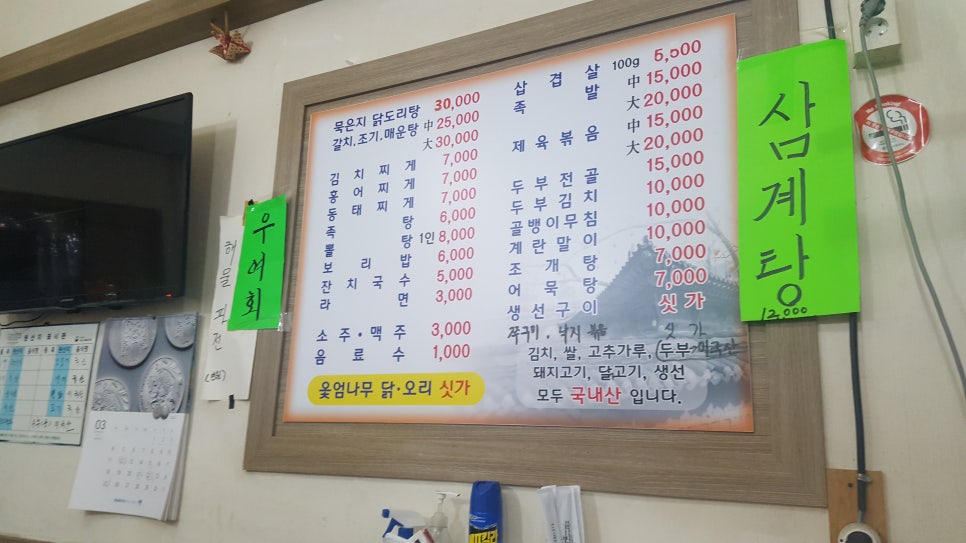 묵은지 닭도리탕 30,000
갈치.조기.매운탕 中 25,000
大 30,000
김치찌게 7,000
홍어찌게 7,000
동태찌게 7,000
족탕 6,000
뽈탕 1인 8,000
보리밥 6,000
잔치국수 5,000
라면 3,000
소주·맥주 3,000
음료수 1,000
옻엄나무 닭·오리 싯가
삼겹살 100g 5,500
족발 中 15,000
大 20,000
제육볶음 中 15,000
大 20,000
두부전골 15,000
두부김치 10,000
골뱅이무침 10,000
계란말이 10,000
조개탕 7,000
어묵탕 7,000
생선구이 싯가
쭈구미. 낙지 볶음 싯가
김치, 쌀, 고추가루, 두부→미국산
돼지고기, 닭고기, 생선
모두 국내산 입니다.
삼계탕
12,000
우여회
해물파전
03